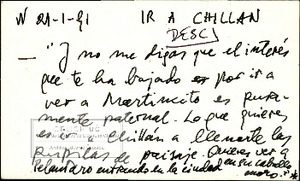 W 29-1-91 IR A CHILLAN
DESC)
— "Y no me digas que el interés
que te ha bajado es por ir a
ver a Martincito es pura-
mente paternal. Lo que quieres
es ir a Chillán a llenarte las
pupilas de paisaje. Quieres ver a
Pelantaro entrando en la ciudad
en su caballo
moro." *